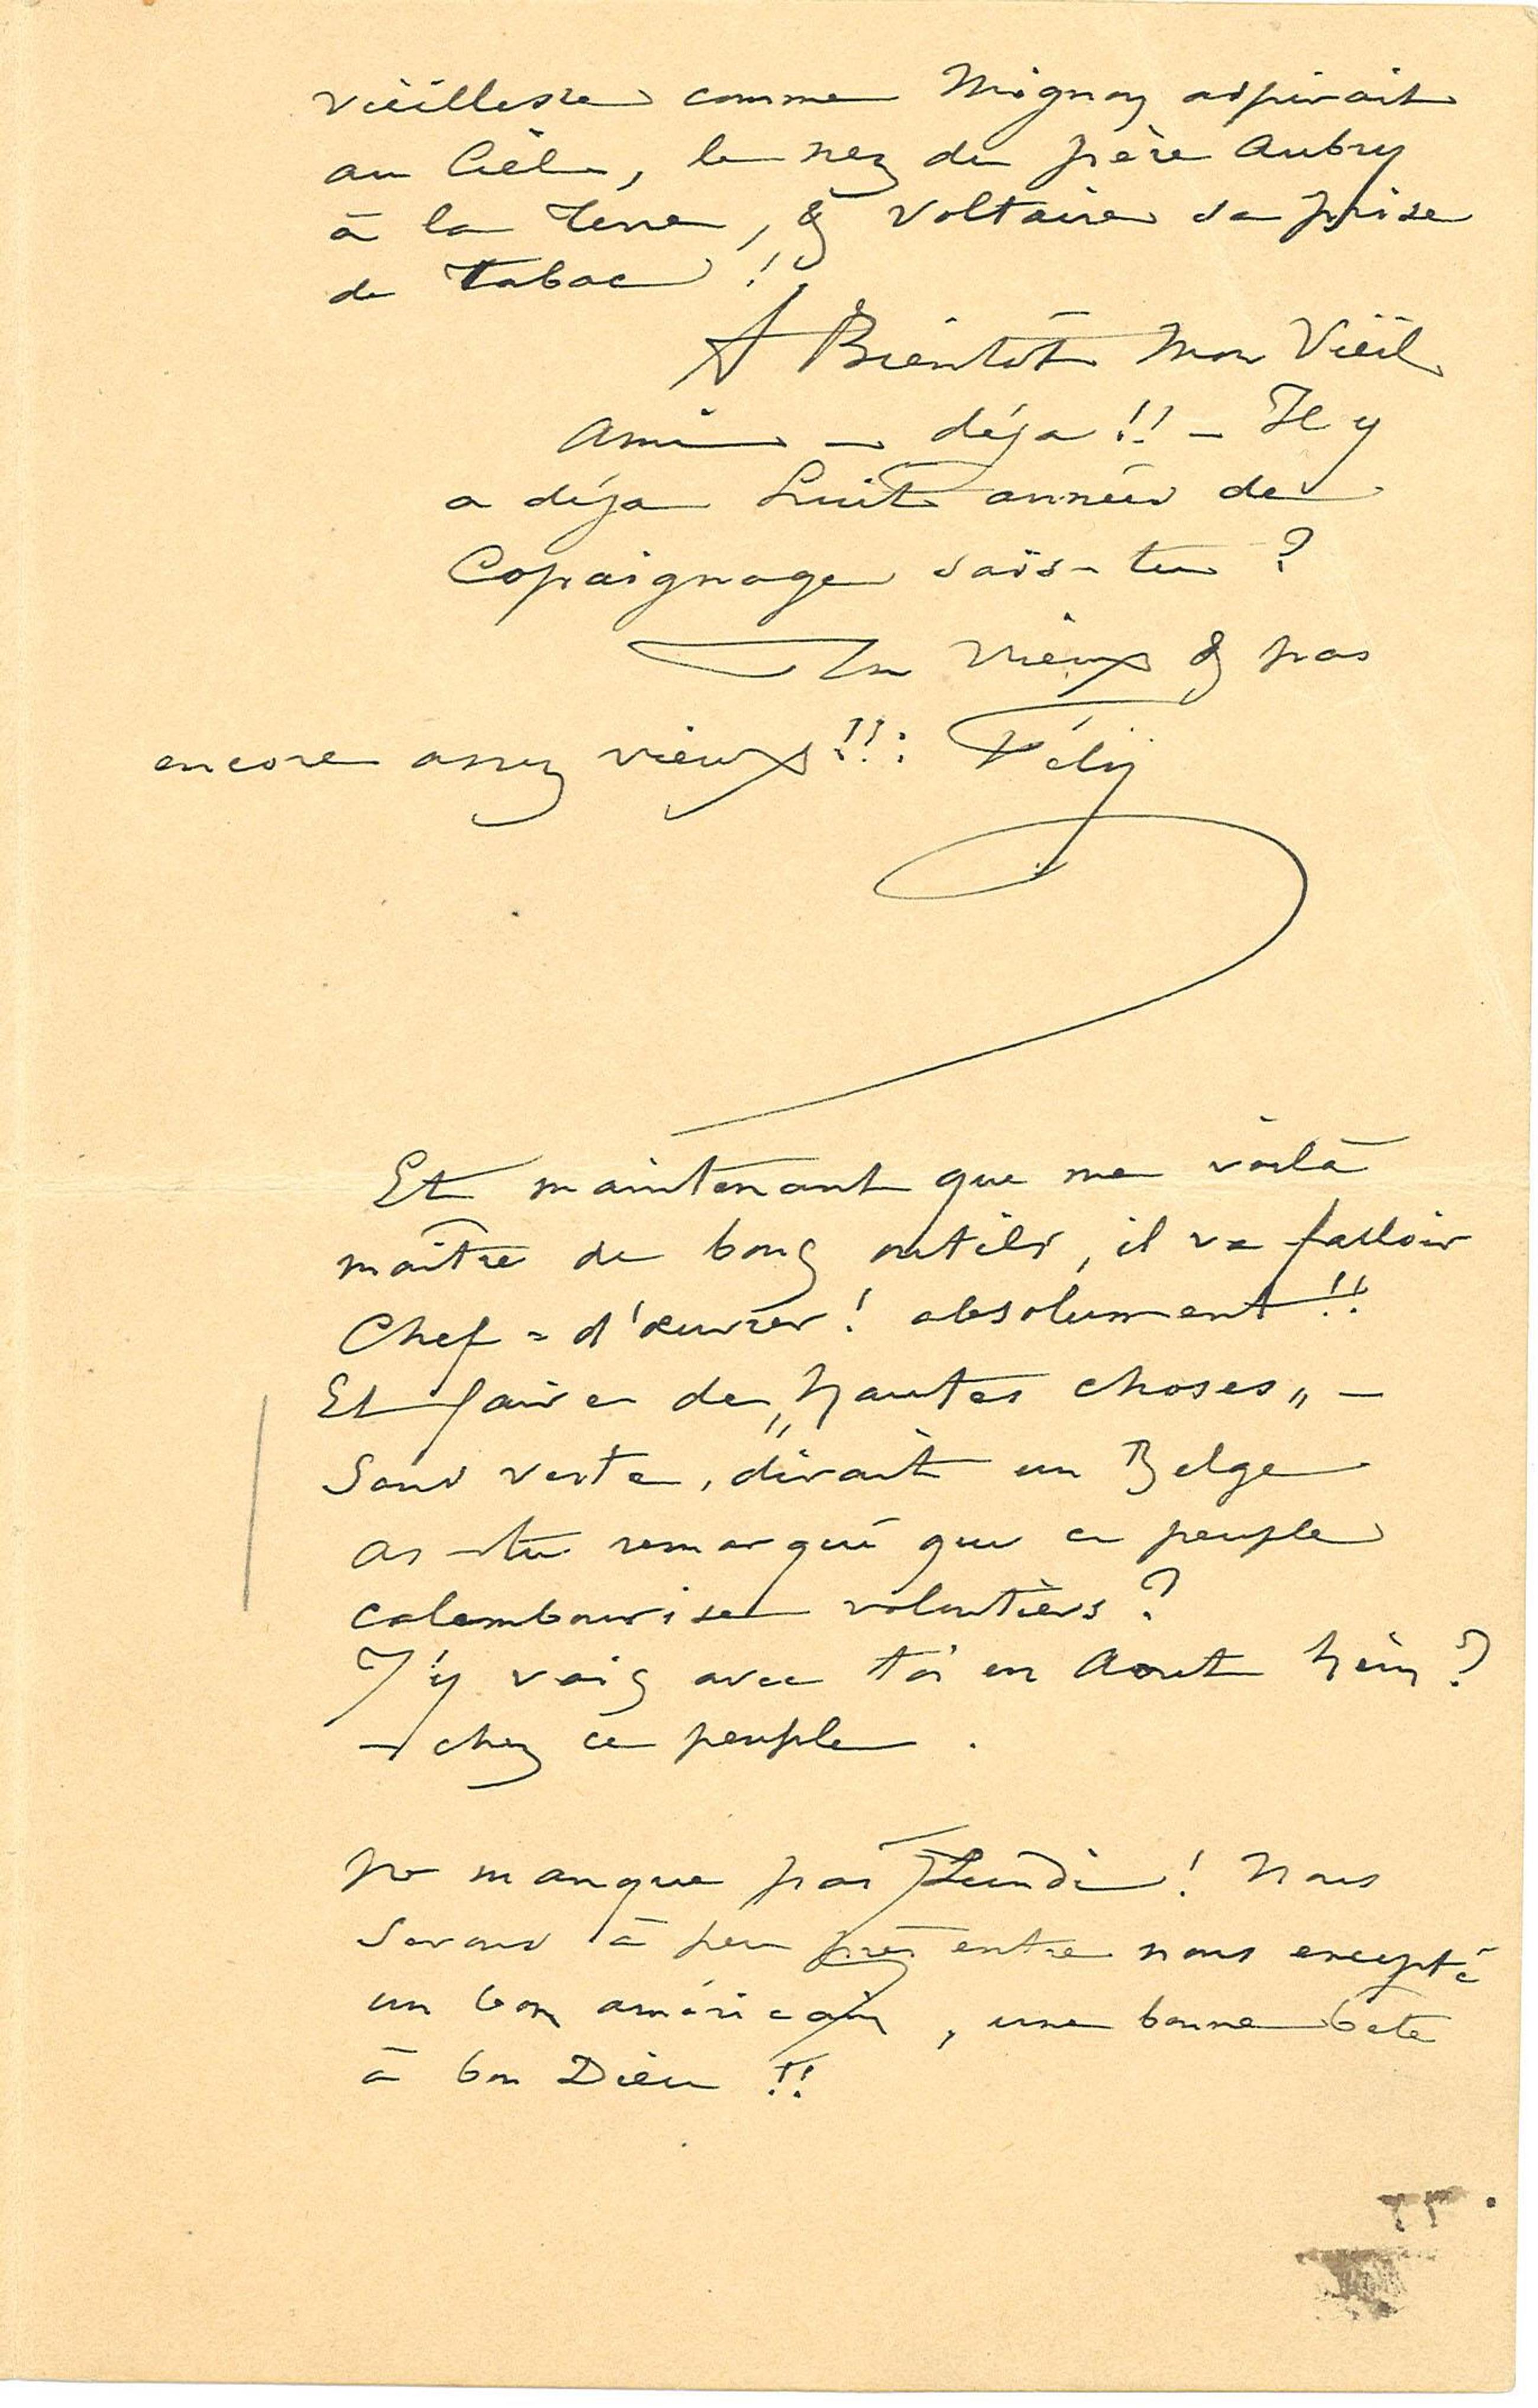 vieillesse comme Mignon aspirait
au Ciel, le nez du père Aubry
à la terre, & Voltaire sa prise
de tabac !
A Bientôt Mon Vieil
ami — déja !! — Il y
a déja huit années de
Copaignage sais-tu ?
Ton vieux & pas
encore assez vieux !!: Fély
Et maintenant que me voilà
maître de bons outils, il va falloir
Chef-d'œuvrer ! absolument !!
Et faire de „hautes choses„ —
Sans veste, dirait un Belge
as-tu remarqué que ce peuple
calembourise volontiers ?
J'y vais avec toi en Aout hein ?
— chez ce peuple .
ne manque pas Lundi ! Nous
serons à peu près entre nous excepté
un bon américain, une bonne bete
à bon Dieu !!